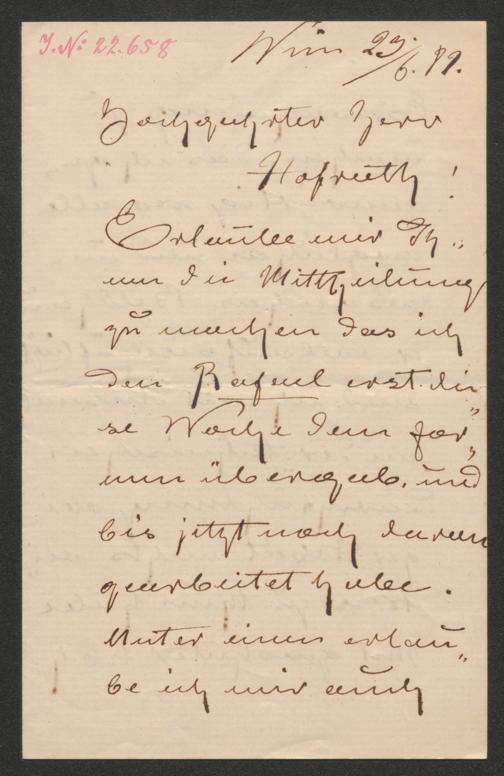 I. N: 22.658
Wien 29/6. 89.
Hochgeehrter Herr
Hofrath!
Erlaube mir Ih„
nen die Mittheilung
zu machen das ich
den Rafael erst die„
se Woche dem For„
mer übergab, und
bis jetzt noch daran
gearbeitet habe.
Unter einen erlau„
be ich mir auch